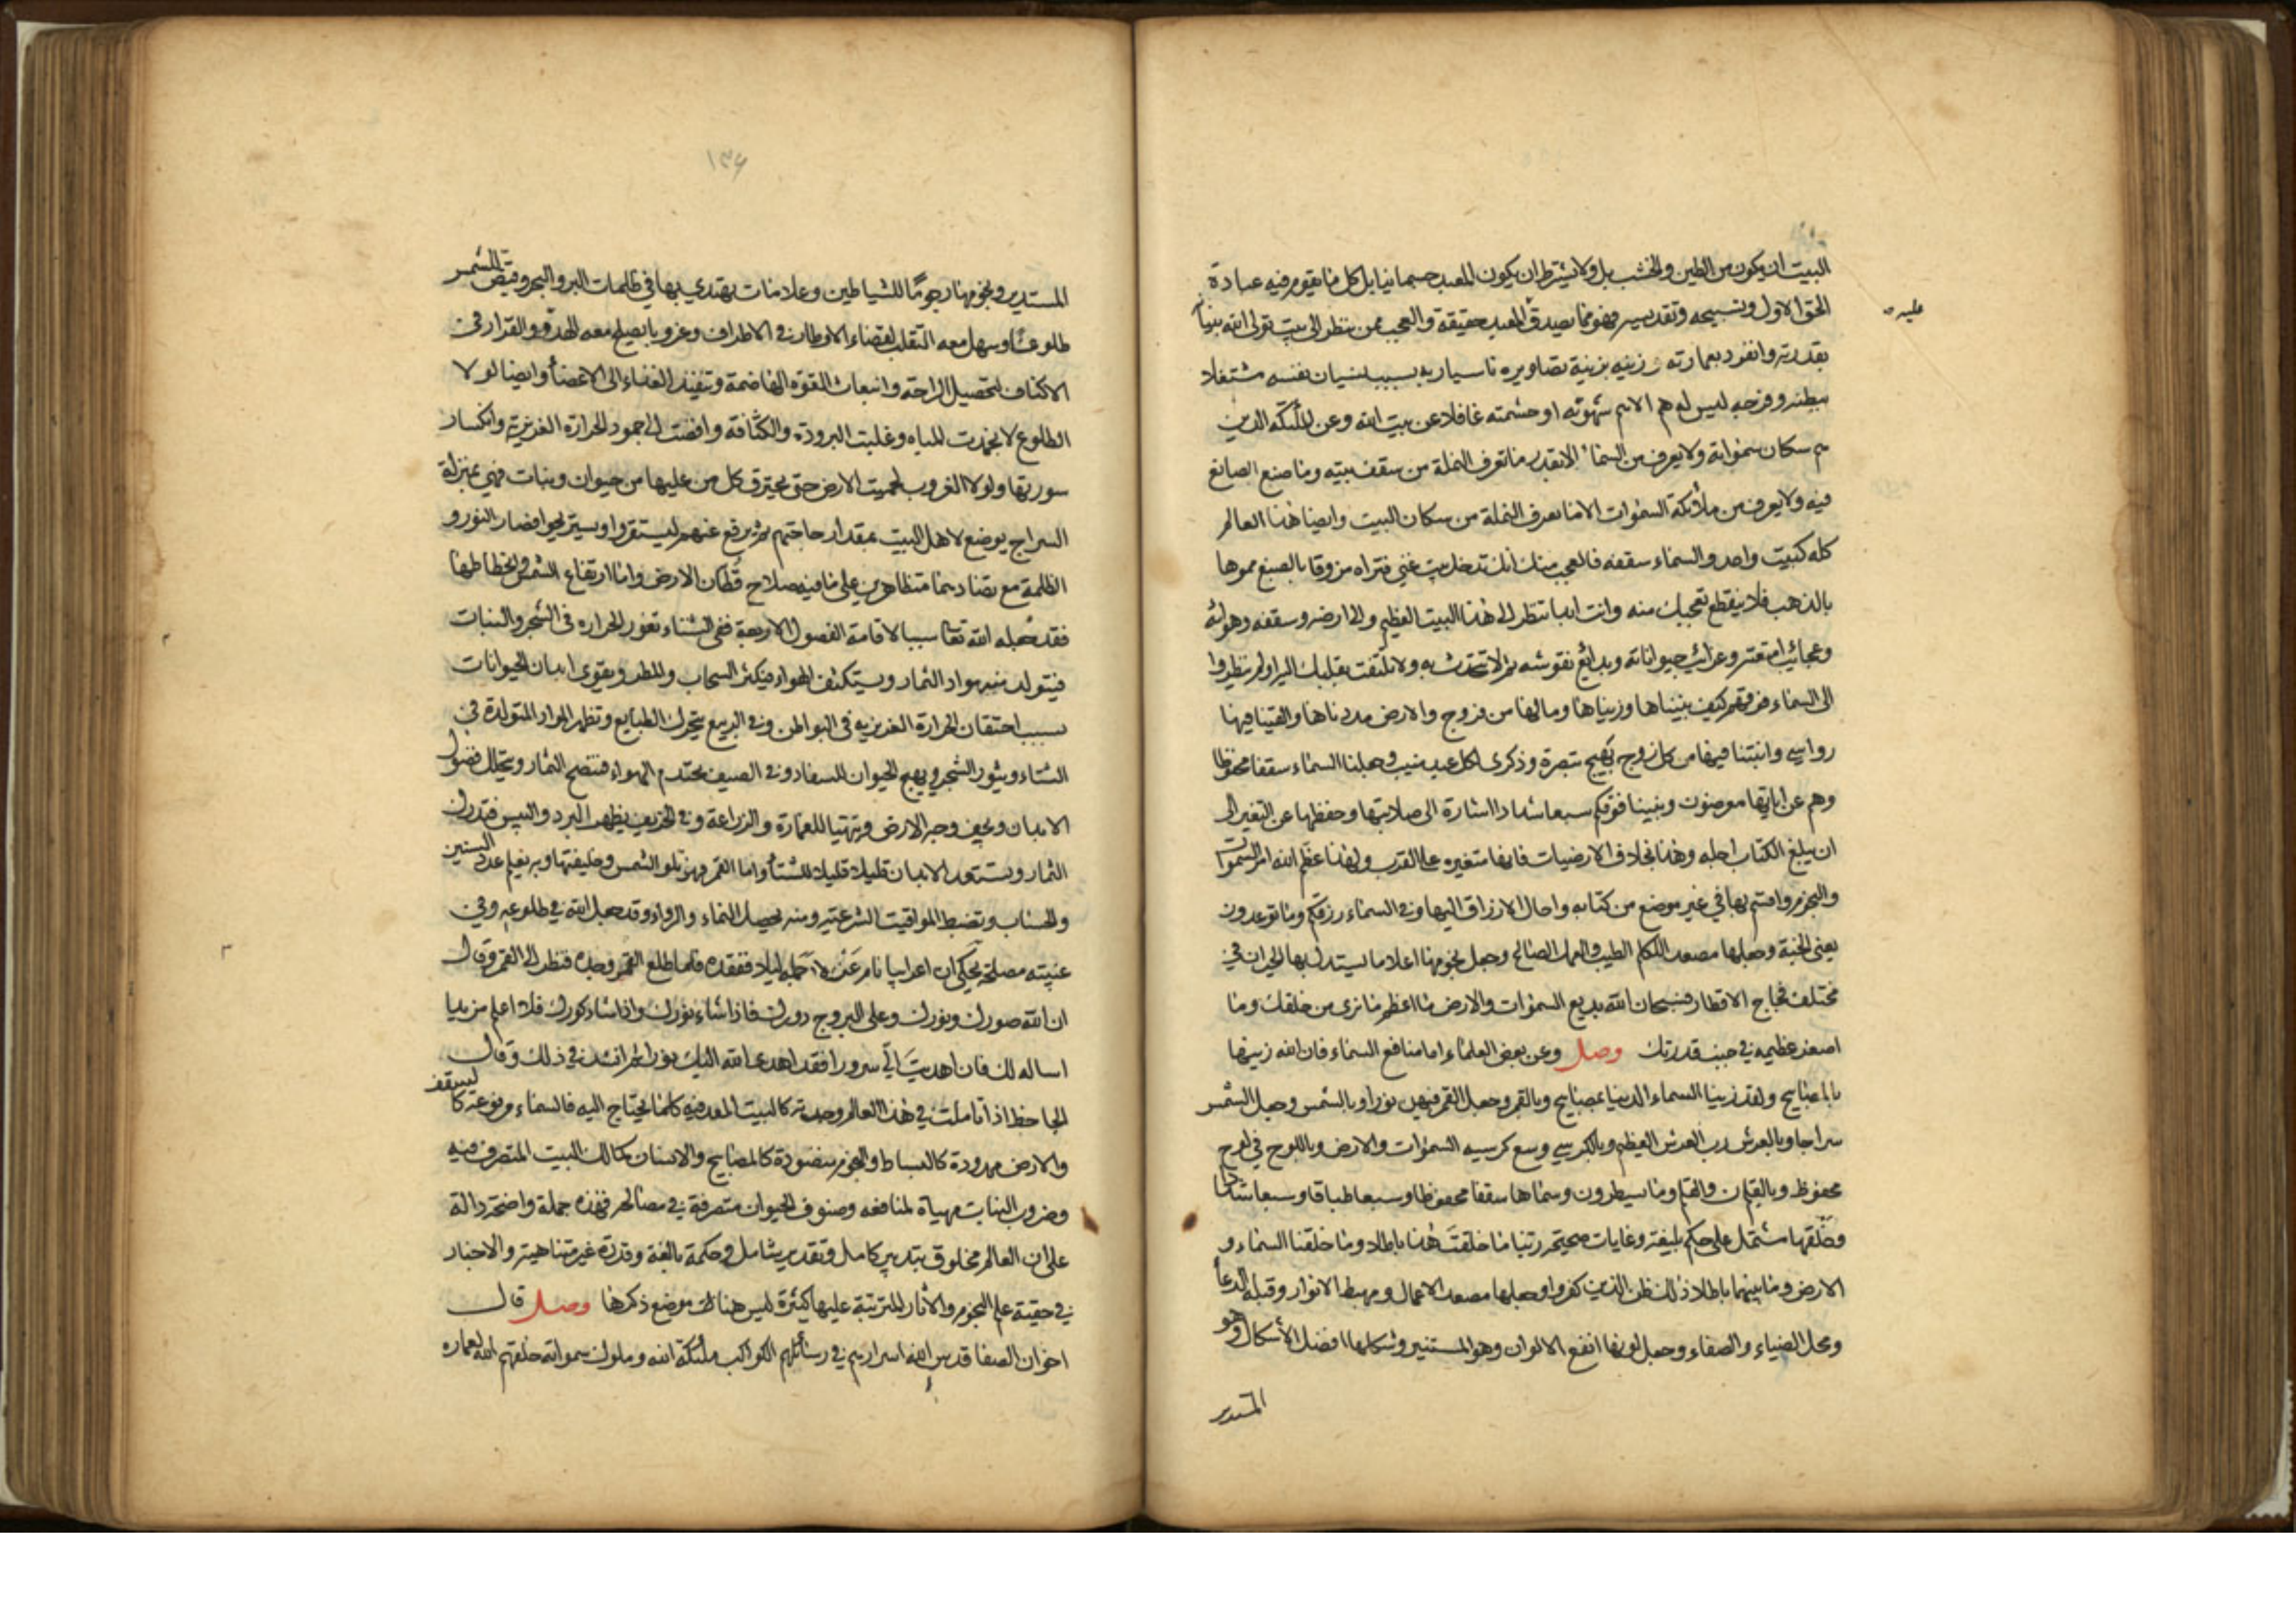 البيت ان يكون من الطين والخشب بل ولا يشترط ان يكون المعبد جسمانيا بل كل ما يقوم فيه عبادة
الحق الاول وتسبيحه وتقديسه فهو مما يصدق المعبد حقيقة والعجب ممن ينظر الى بيت تولى الله بناءه
عليه
بقدرته وانفرد بعمارته وزينه بزينة تصاويره ناسيا ربه بسبب نسيان نفسه مشتغلا
ببطنه وفرجه ليس له هم الا هم شهوته او حشمته غافلا عن بيت الله وعن ملائكته الذين
هم سكان سمواته ولا يعرف من السماء الا بقدر ما تعرف النملة من سقف بيته وما صنع الصانع
فيه ولا يعرف من ملائكة السموات الا ما تعرف النملة من سكان البيت وايضا هذا العالم
كله كبيت واحد والسماء سقفه فالعجب منك انك تدخل بيت غني فتراه مزوقا بالصبغ مموها
بالذهب فلا ينقطع تعجبك منه وانت ابدا تنظر الى هذا البيت العظيم والى ارضه وسقفه وهوائه
وعجائب امتعته وغرائب حيواناته وبدائع نقوشه ثم لا تتحدث به ولا تلتفت بقلبك اليه اولم ينظروا
الى السماء فوقهم كيف بنيناها وزيناها وما لها من فروج والارض مددناها والقينا فيها
رواسي وانبتنا فيها من كل زوج بهيج تبصرة وذكرى لكل عبد منيب وجعلنا السماء سقفا محفوظا
وهم عن اياتها معرضون وبنينا فوقكم سبعا شدادا اشارة الى صلابتها وحفظها عن التغير الى
ان يبلغ الكتاب اجله وهذا بخلاف الارضيات فانها متغيره على القرب ولهذا عظم الله امر السموات
والنجوم واقسم بها في غير موضع من كتابه واحال الارزاق اليها وفي السماء رزقكم وما توعدون
يعني الجنة وجعلها مصعد الكلم الطيب والعمل الصالح وجعل نجومها اعلاما يستدل بها الحيران في
مختلف فجاج الاقطار فسبحان الله بديع السموات والارض ما اعظم ما نرى من خلقك وما
اصغر عظيمه في جنب قدرتك وصل وعن بعض العلماء اما منافع السماء فان الله زينها
بالمصابيح ولقد زينا السماء الدنيا بمصابيح وبالقمر وجعل القمر فيهن نورا وبالشمس وجعل الشمس
سراجا وبالعرش رب العرش العظيم وبالكرسي وسع كرسيه السموات والارض وباللوح في لوح
محفوظ وبالقلم ن والقلم وما يسطرون وسماها سقفا محفوظا وسبعا طباقا وسبعا شدادا
وخلقها مشتمل على حكم بليغة وغايات صحيحة ربنا ما خلقت هذا باطلا وما خلقنا السماء و
الارض وما بينهما باطلا ذلك ظن الذين كفروا وجعلها مصعد الاعمال ومهبط الانوار وقبلة الدعاء
ومحل الضياء والصفاء وجعل لونها انفع الالوان وهو المستنير وشكلها افضل الأشكال وهو
المستدير
١٣٦
المستدير ونجومها رجوما للشياطين وعلامات يهتدي بها في ظلمات البر والبحر وقيض للشمس
طلوعا وسهل معه التقلب لقضاء الاوطار في الاطراف وغروبا يصلح معه الهدو والقرار في
الاكناف لتحصيل الراحة وانبعاث القوة الهاضمة وتنفيذ الغذاء الى الاعضاء وايضا لولا
الطلوع لانجمدت المياه وغلبت البرودة والكثافة وافضت الى جمود الحرارة الغريزية وانكسار
سورتها ولولا الغروب لحميت الارض حتى يحترق كل من عليها من حيوان ونبات فهي بمنزلة
السراج يوضع لاهل البيت بمقدار حاجتهم ثم يرفع عنهم ليستقروا ويستريحوا فصار النور و
الظلمة مع تضادهما متظاهرين على ما فيه صلاح قطان الارض واما ارتفاع الشمس وانحطاطها
فقد جعله الله تعا سببا لاقامة الفصول الاربعة ففي الشتاء تغور الحرارة في الشجر والنبات
فيتولد منه مواد الثمار ويستكثف الهواء فيكثر السحاب والمطر ويقوى ابدان الحيوانات
بسبب احتقان الحرارة الغريزيه في البواطن وفي الربيع يتحرك الطبايع وتظهر المواد المتولدة في
الشتاء وينور الشجر ويهيج الحيوان للسفاد وفي الصيف يحتدم الهواء فتنضج الثمار ويتحلل فضول
الابدان ويجف وجه الارض ويتهيا للعمارة والزراعة وفي الخريف يظهر البرد واليبس فتدرك
الثمار وتستعد الابدان قليلا قليلا للشتاء واما القمر فهو تلو الشمس وخليفتها وبه نعلم عدد السنين
والحساب وتضبط المواقيت الشرعيه ومنه يحصل النماء والرواء وقد جعل الله في طلوعه وفي
غيبته مصلحة يحكى ان اعرابيا نام عن جمله ليلا ففقده فلما طلع القمر وجده فنظر الى القمر وقال
ان الله صورك ونورك وعلى البروج دورك فاذا شاء نورك واذا شاء كورك فلا اعلم مزيدا
اساله لك فان اهديت الي سرورا فقد اهدى الله اليك نورا ثم انشد في ذلك وقال
الجاحظ اذا تاملت في هذا العالم وجدته كالبيت المعد فيه كلما يحتاج اليه فالسماء مرفوعة كالسقف
والارض ممدودة كالبساط والنجوم منضودة كالمصابيح والانسان كمالك البيت المتصرف فيه
وضروب النبات مهياة لمنافعه وصنوف الحيوان متصرفة في مصالحه فهذه جملة واضحة دالة
على ان العالم مخلوق بتدبير كامل وتقدير شامل وحكمة بالغة وقدرة غير متناهية والاخبار
في حقية علم النجوم والآثار المترتبة عليها كثيرة ليس هناك موضع ذكرها وصل قال
اخوان الصفا قدس الله اسرارهم في رسائلهم الكواكب ملائكة الله وملوك سمواته خلقهم الله لعماره